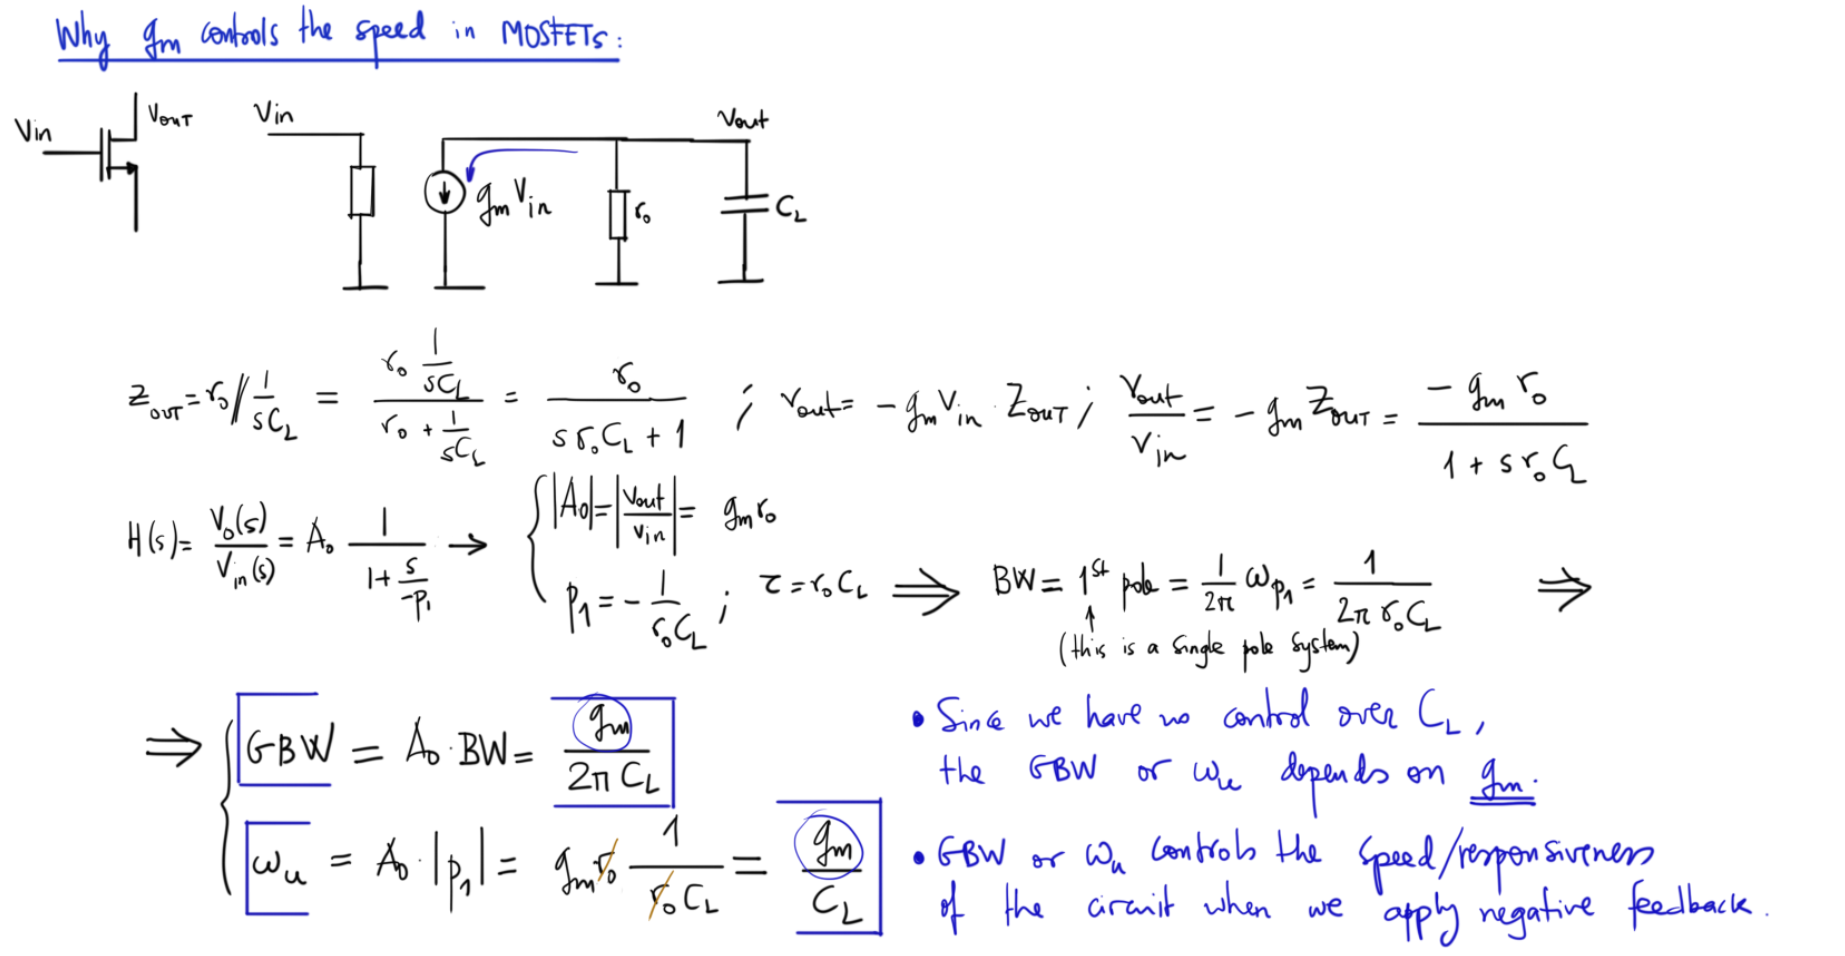 Why gm controls the speed in MOSFETs:
Vin
VOUT
Vin
gm Vin
ro
Vout
CL
ZOUT = ro // 1/sCL = (ro 1/sCL)/(ro + 1/sCL) = ro/(s roCL + 1) ; Vout = - gm Vin · ZOUT ; Vout/Vin = - gm ZOUT = - gm ro/(1 + s ro CL)
H(s) = Vo(s)/Vin(s) = Ao 1/(1 + s/-p1) → { |Ao| = |Vout/Vin| = gm ro
p1 = - 1/roCL ; τ = roCL ⟹ BW = 1st pole = 1/2π ωp1 = 1/(2π roCL) ⟹
↑
(this is a single pole system)
⟹ { GBW = Ao · BW = gm/(2π CL)
ωu = Ao · |p1| = gm ro 1/(ro CL) = gm/CL
• Since we have no control over CL,
the GBW or ωu depends on gm.
• GBW or ωu controls the speed/responsiveness
of the circuit when we apply negative feedback.